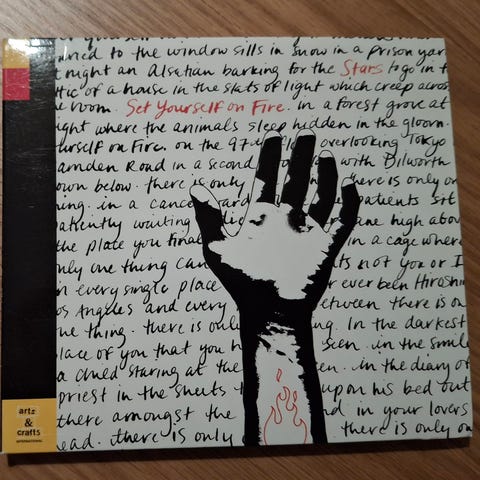 nued to the window sills in snow in a prison yar
tnight an Alsatian barking for the Stars to go in t
tic of a house in the slats of light which creep across
e room. Set Yourself on Fire. in a forest grove at
ight where the animals sleep hidden in the gloom.
urself on Fire. on the 97th floor overlooking Tokyo
amden Road in a second with Dilworth
own below. there is only there is only on
ning. in a cance ard patients sit
atiently waiting die ane high abov
the plate you final in a cage where
nly one thing can ts not you or I
n every single place r ever been Hiroshim
os Angeles and every etween there is on
ne thing. there is only ng. In the darkest
lace of you that you h seen. in the smile
a child staring at the en. in the diary of
priest in the sheets t upon his bed out
there amongst the nd in your lovers
ead. there is only there is only on
arts
&
crafts
INTERNATIONAL